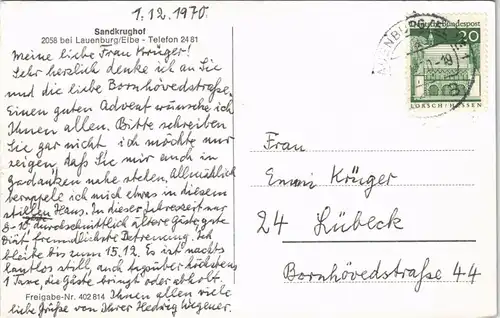 1.12.1970.
Sandkrughof
2058 bei Lauenburg/Elbe - Telefon 24 81
Meine liebe Frau Krüger!
Sehr herzlich denke ich an Sie
und die liebe Bornhövedstraße.
Einen guten Advent wünsche ich
Ihnen allen. Bitte schreiben
Sie gar nicht ich möchte nur
zeigen, daß Sie mir auch in
Gedanken nahe stehen. Allmählich
berappele ich mich etwas in diesem
stillen Haus. In dieser Jahreszeit nur
8-10 durchschnittlich ältere Gäste, gute
Diät freundlichste Betreuung. Ich
bleibe bis zum 15.12. Es ist nachts
lautlos still, auch tagsüber höchstens
1 Taxe die Gäste bringt oder abholt.
Freigabe-Nr. 402 814 Ihnen allen viele
liebe Grüße von Ihrer Hedwig Wegener.
Deutsche Bundespost
20
LORSCH/HESSEN
Frau
Emmi Krüger
24 Lübeck
Bornhövedstraße 44